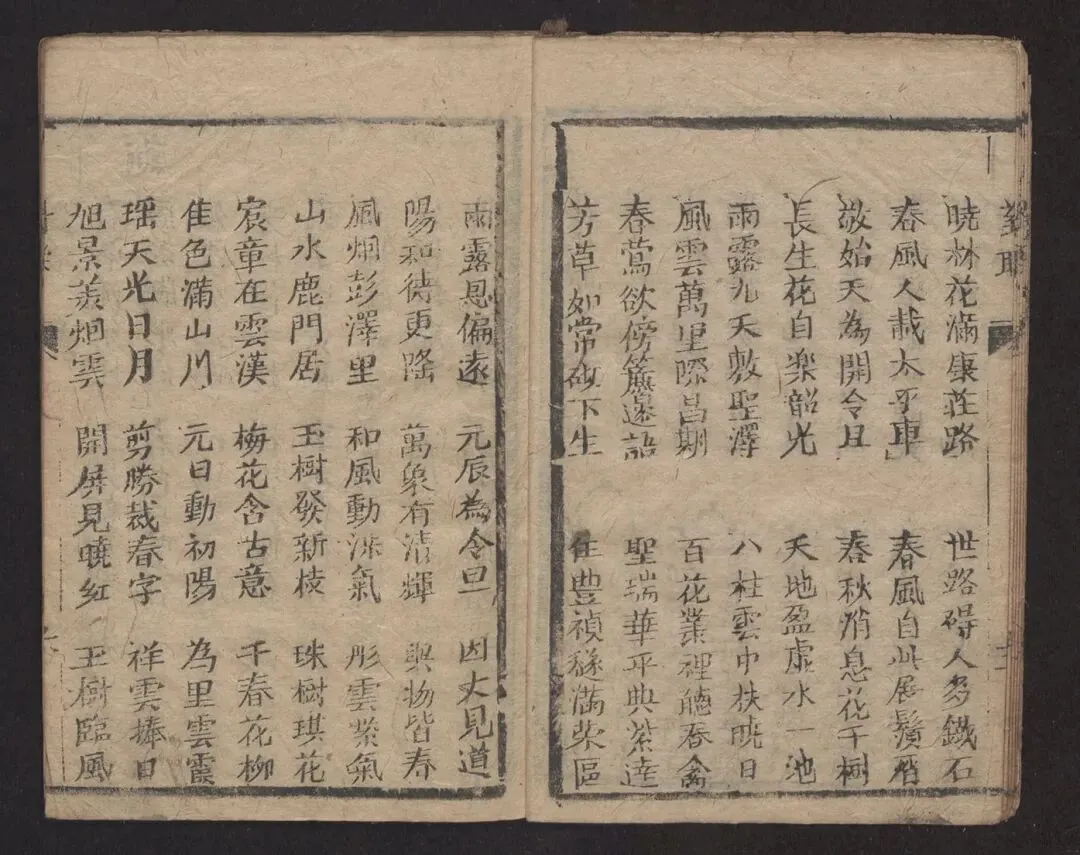 對聯
曉林花滿康莊路 世路碍人多鐵石
春風人載太平車 春風自此展鬚眉
敬始天為開令旦 春秋消息花千樹
長生花自樂韶光 天地盈虛水一池
雨露九天敷聖澤 八柱雲中扶曉日
風雲萬里際昌期 百花叢裡聽春禽
春鶯欲傍簷邊語 聖瑞華平典萊逹
芳草如常砌下生 年豊禎穟滿菜區
雨露恩偏遠 元辰為令旦 因大見道
陽和待更隆 萬象有清輝 與物皆春
風烟彭澤里 和風動淑氣 彤雲紫氣
山水鹿門居 玉樹發新枝 珠樹琪花
宸章在雲漢 梅花含古意 千春花柳
佳色滿山川 元日動初陽 為里雲霞
瑶天光日月 剪勝裁春字 祥雲捧日
旭景羡烟雲 開屏見曉紅 玉樹臨風